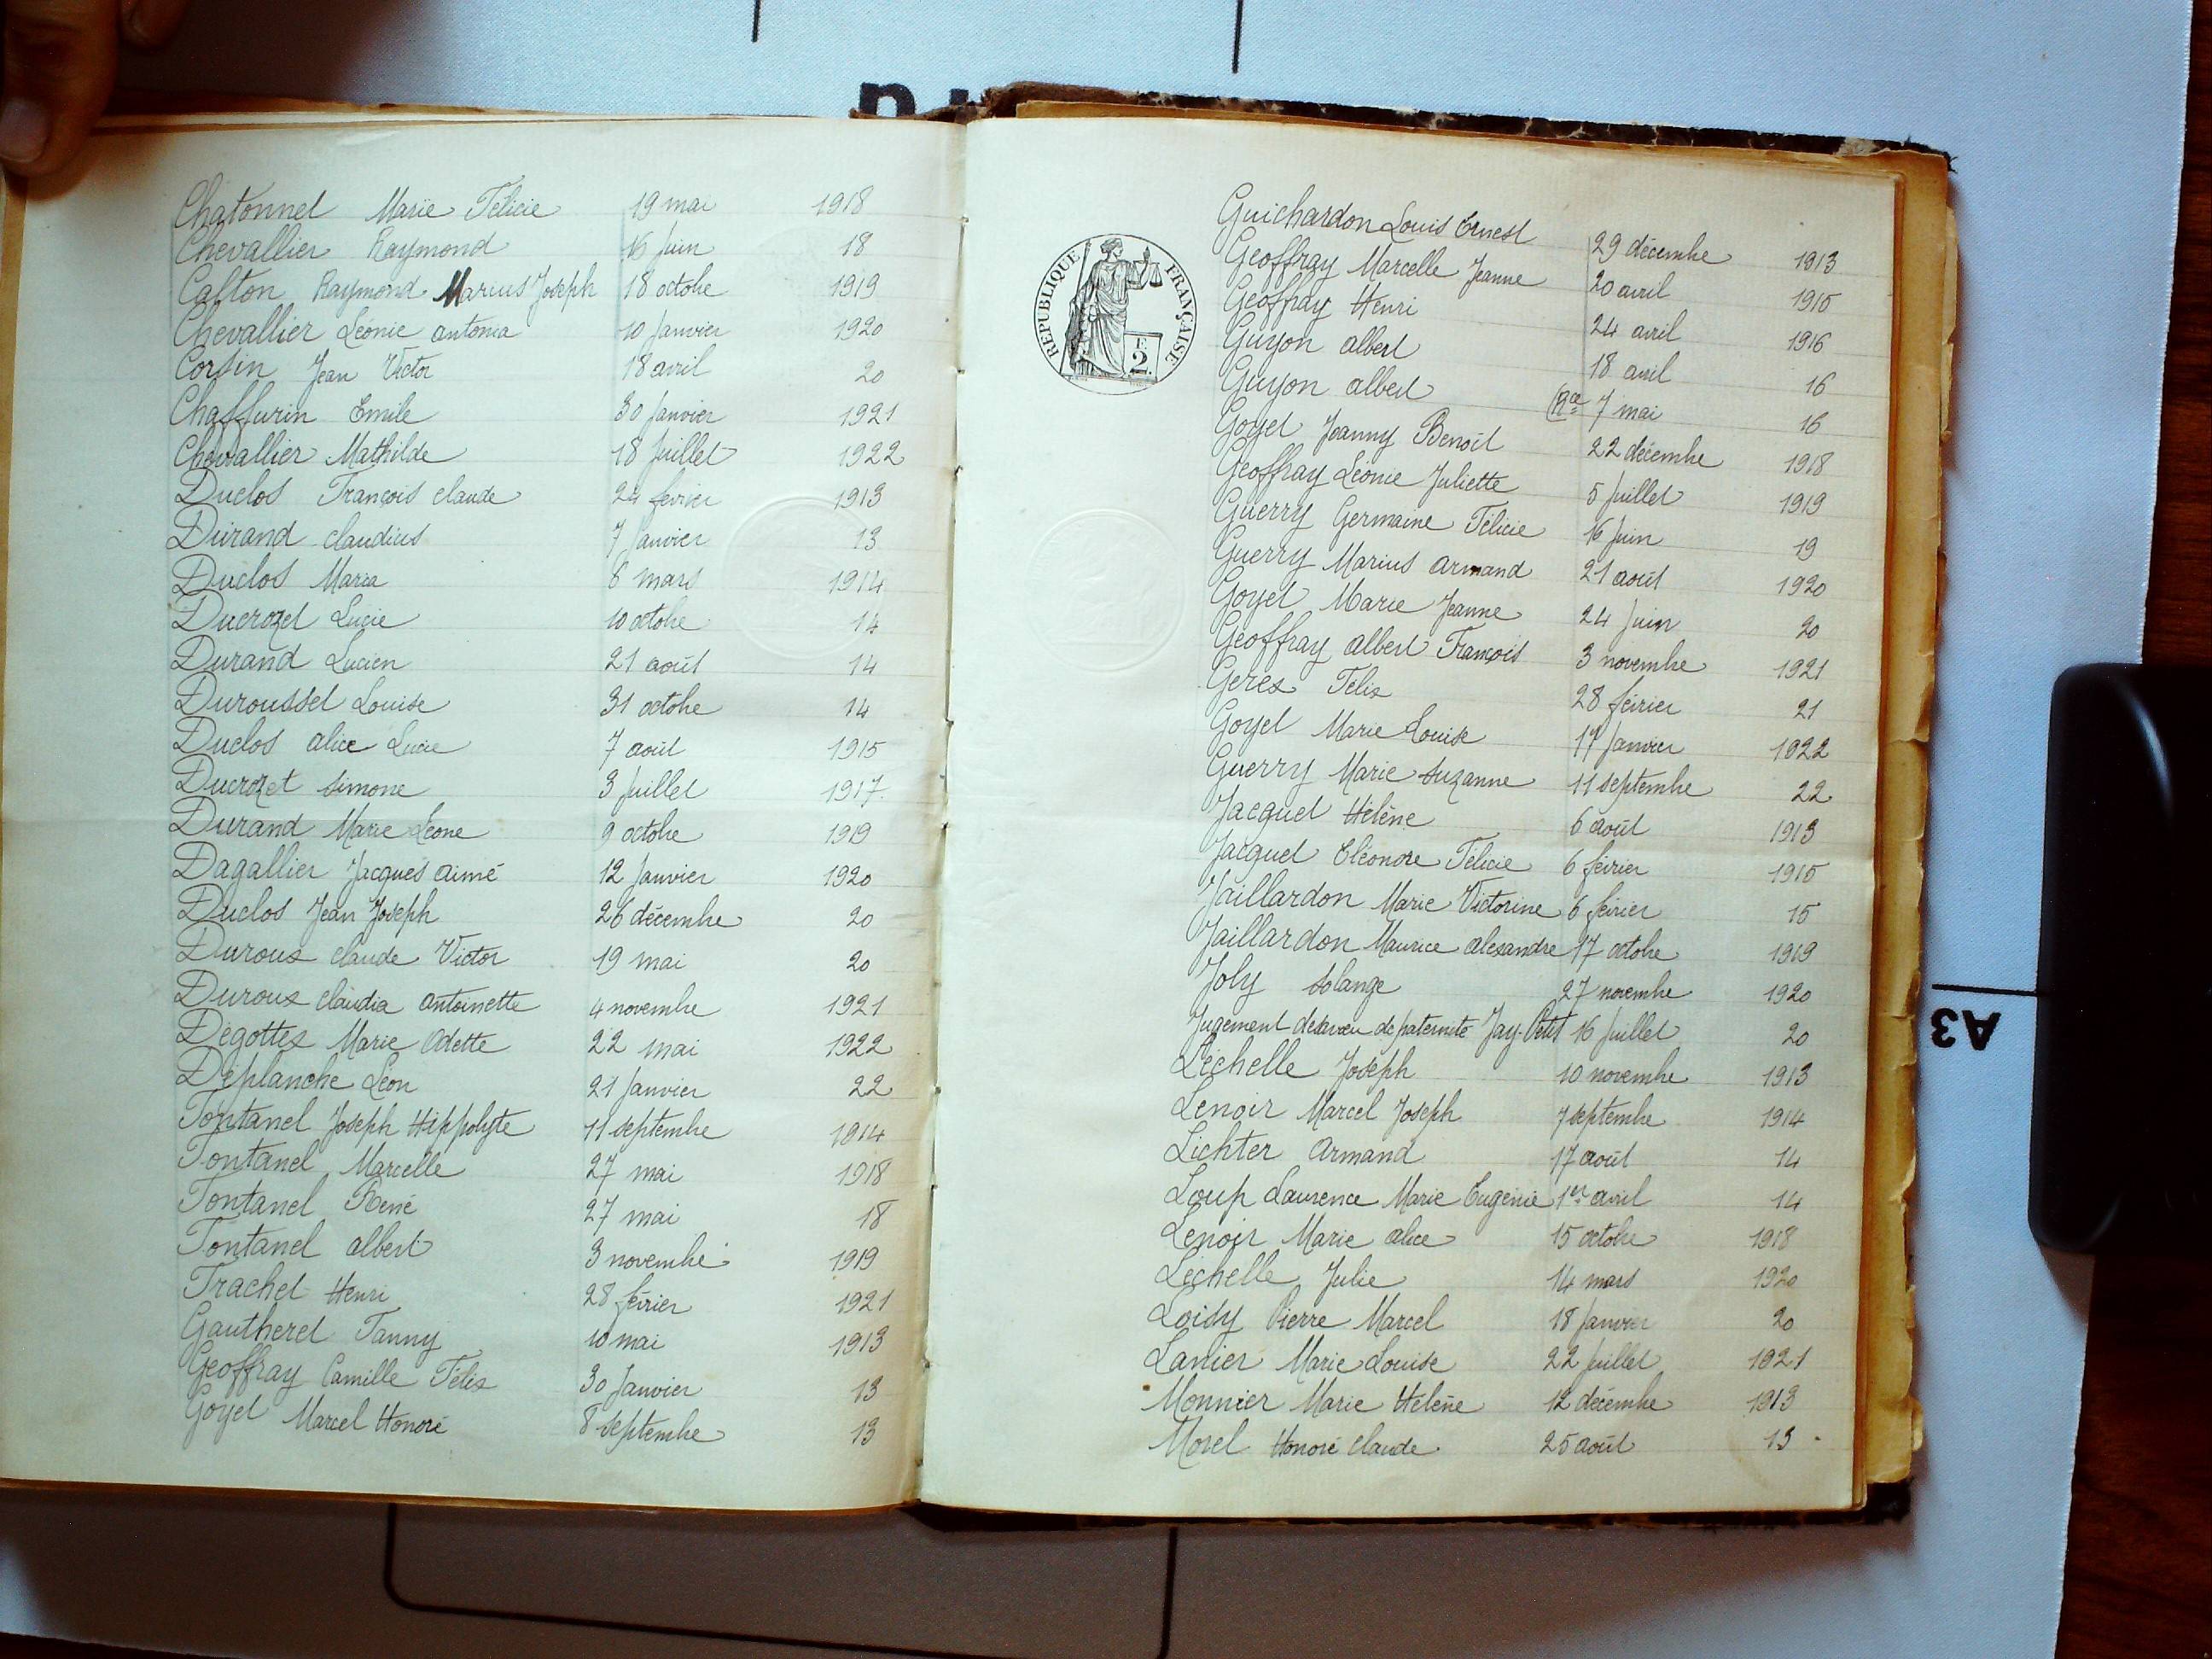 Chatonnet Marie Félicie 19 mai 1918
Chevallier Raymond 16 Juin 18
Catton Raymond Marius Joseph 18 octobre 1919
Chevallier Léonie antonia 10 Janvier 1920
Corsin Jean Victor 18 avril 20
Chaffurin Emile 30 Janvier 1921
Chevallier Mathilde 18 Juillet 1922
Duclos François claude 24 février 1913
Durand claudius 7 Janvier 13
Duclos Maria 6 mars 1914
Ducrozet Lucie 10 octobre 14
Durand Lucien 21 août 14
Duroussel Louise 31 octobre 14
Duclos alice Lucie 7 août 1915
Ducrozet simone 3 Juillet 1917
Durand Marie Léone 9 octobre 1919
Dagallier Jacques aimé 12 Janvier 1920
Duclos Jean Joseph 26 décembre 20
Duroux claude Victor 19 mai 20
Duroux claudia antoinette 4 novembre 1921
Dégottex Marie Odette 22 mai 1922
Déplanche Léon 21 Janvier 22
Fontanel Joseph Hippolyte 11 septembre 1914
Fontanel Marcelle 27 mai 1918
Fontanel René 27 mai 18
Fontanel albert 3 novembre 1919
Frachet Henri 28 février 1921
Gautheret Fanny 10 mai 1913
Geoffray Camille Félix 30 Janvier 13
Goyet Marcel Honoré 8 septembre 13
RÉPUBLIQUE FRANÇAISE
2 F.
Guichardon Louis Ernest 29 décembre 1913
Geoffray Marcelle Jeanne 20 avril 1915
Geoffray Henri 24 avril 1916
Guyon albert 18 avril 16
Guyon albert (Rce 7 mai 16
Goyet Joanny Benoît 22 décembre 1918
Geoffray Léonie Juliette 5 Juillet 1919
Guerry Germaine Félicie 16 Juin 19
Guerry Marius armand 21 août 1920
Goyet Marie Jeanne 24 Juin 20
Geoffray albert François 3 novembre 1921
Gerex Félix 28 février 21
Goyet Marie Louise 17 Janvier 1922
Guerry Marie suzanne 11 septembre 22
Jacquet Hélène 6 août 1913
Jacquet Eléonore Félicie 6 février 1915
Jaillardon Marie Victorine 6 février 15
Jaillardon Maurice alexandre 17 octobre 1919
Joly solange 27 novembre 1920
Jugement désaveu de paternité Jay-Petit 16 Juillet 20
Léchelle Joseph 10 novembre 1913
Lenoir Marcel Joseph 7 septembre 1914
Lichter armand 17 août 14
Loup Laurence Marie Eugénie 1er avril 14
Lenoir Marie alice 15 octobre 1918
Lechelle Julie 14 mars 1920
Loidy Pierre Marcel 18 Janvier 20
Lanier Marie Louise 22 Juillet 1921
Monnier Marie Hélène 12 décembre 1913
Morel Honoré claude 25 août 13
A3